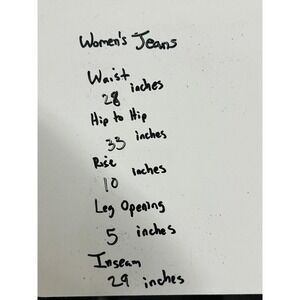 Women's Jeans
Waist
28 inches
Hip to Hip
33 inches
Rise
10 inches
Leg Opening
5 inches
Inseam
29 inches